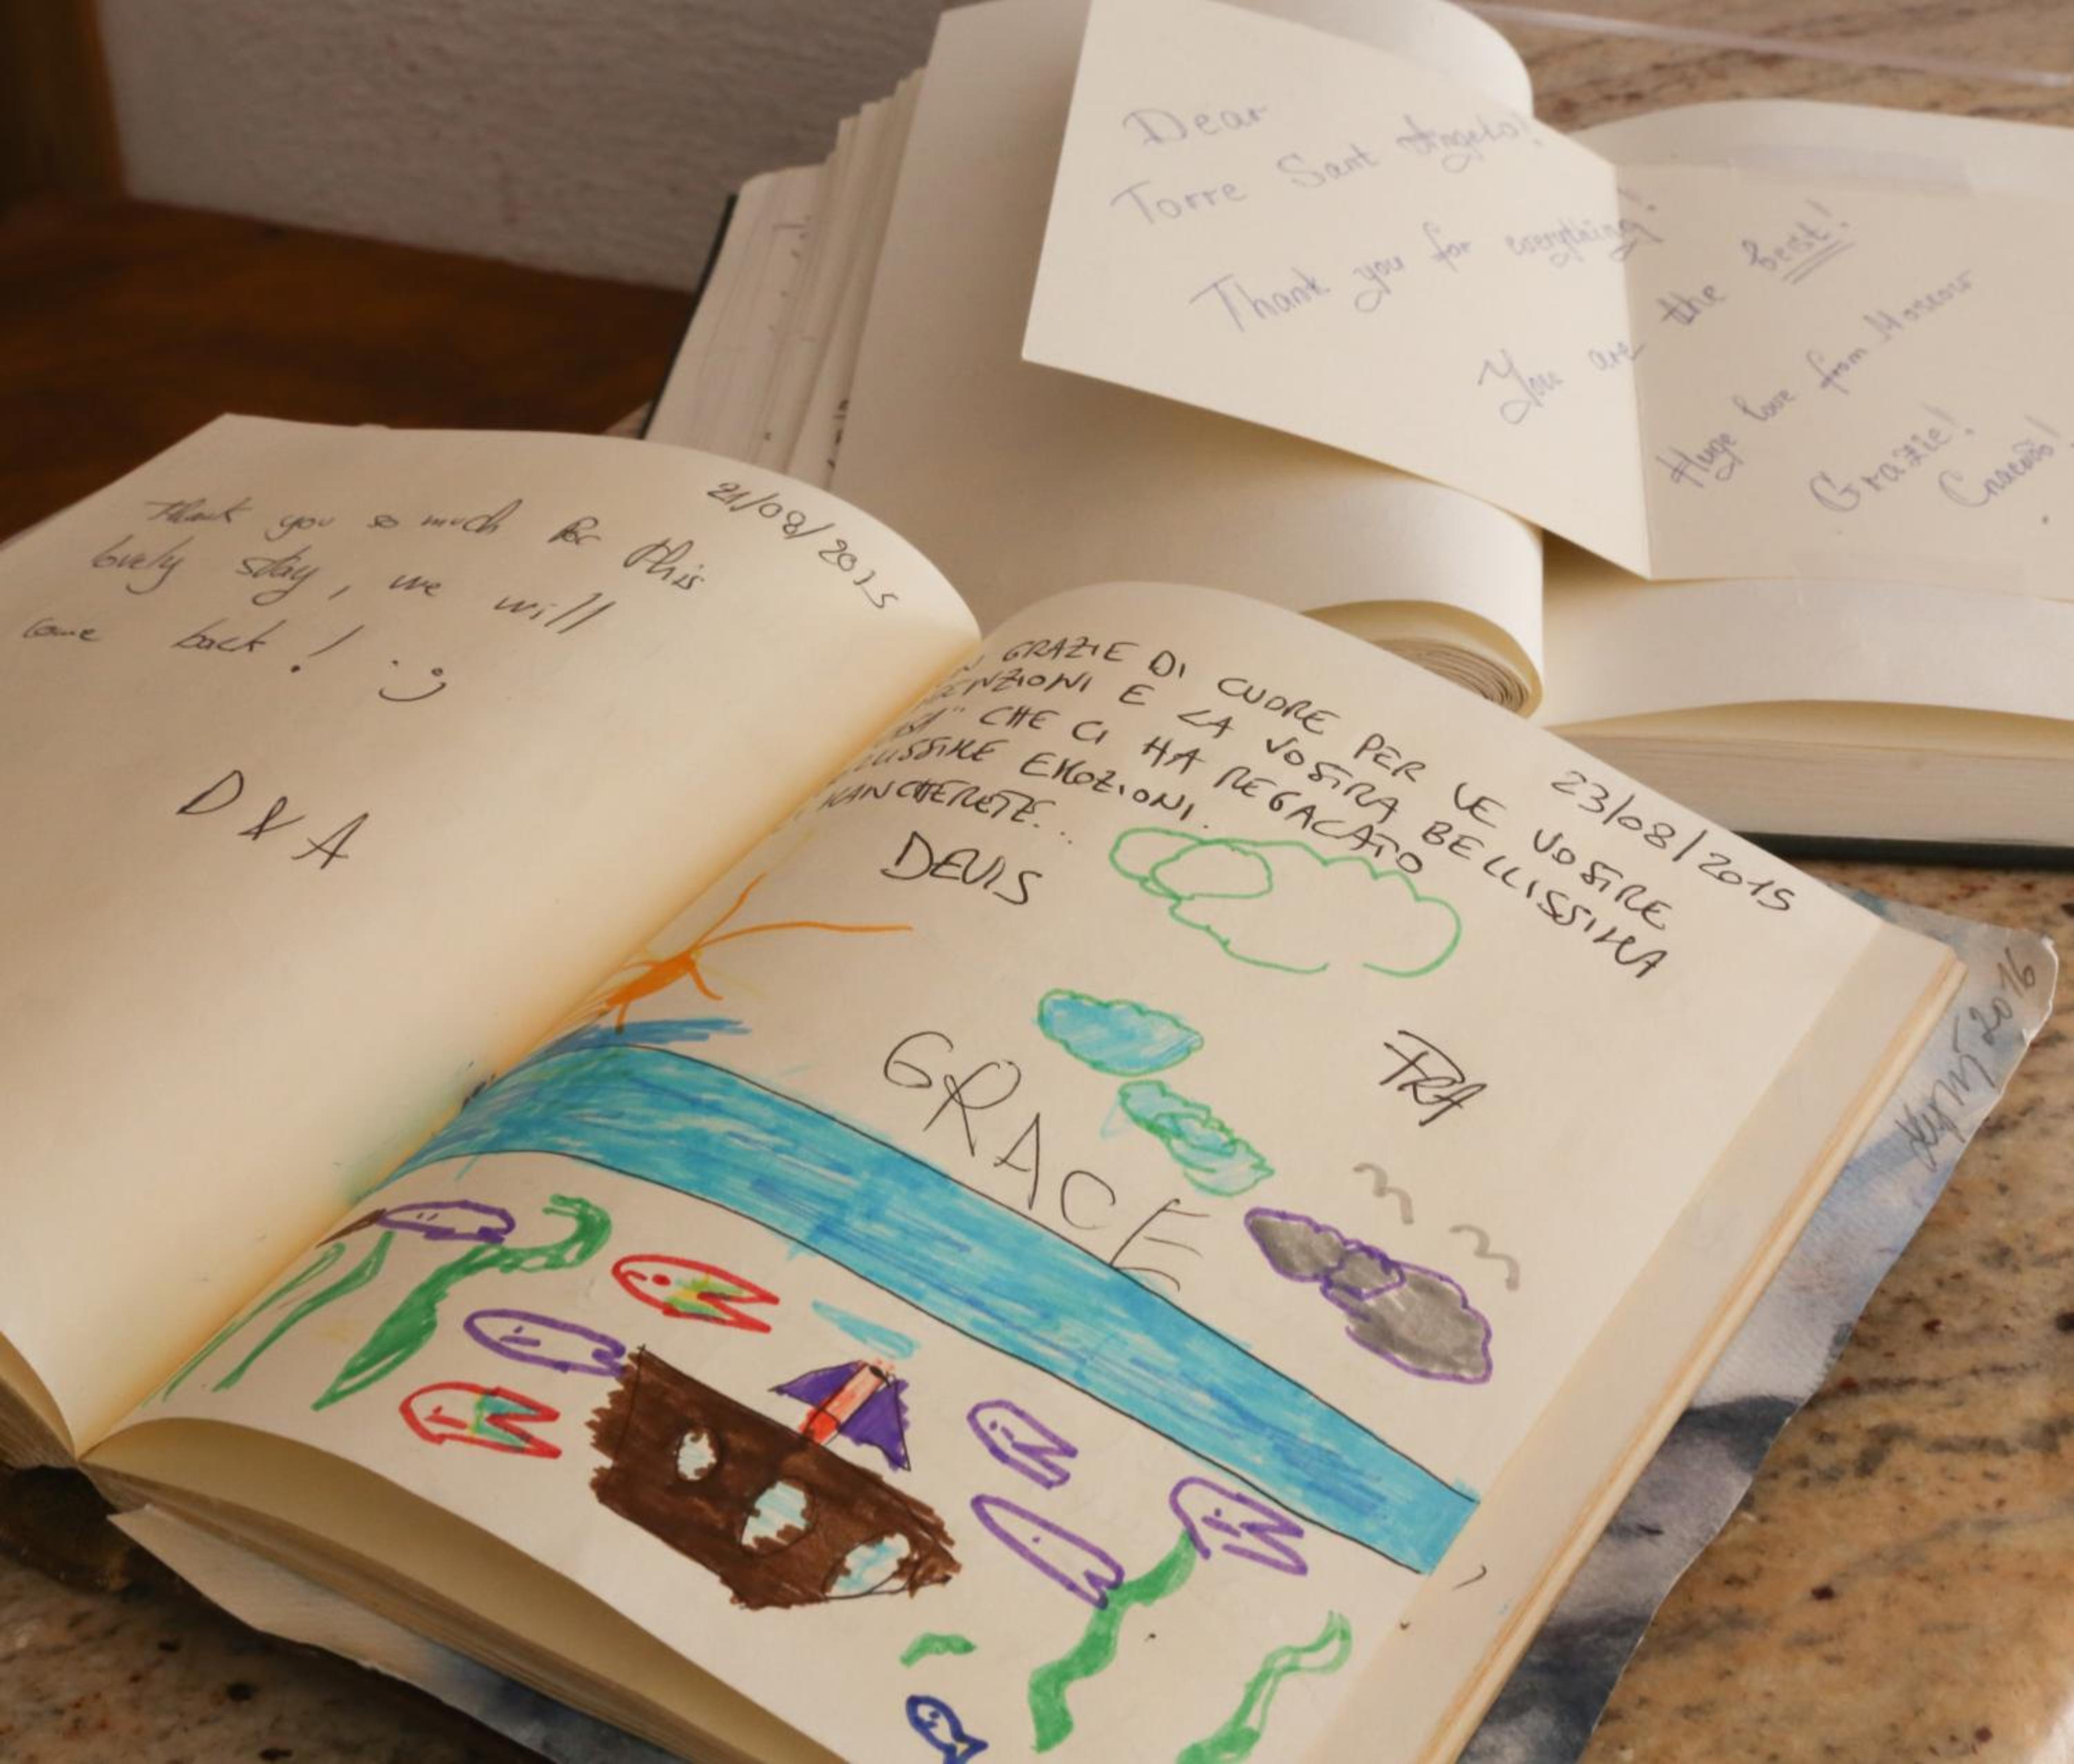 Dear
Torre Sant Angelo!
Thank you for everything!
You are the best!
Huge love from Moscow
Grazie!
Спасибо!
21/08/2015
Thank you so much for this
lovely stay, we will
come back! :)
D & A
23/08/2015
GRAZIE DI CUORE PER LE VOSTRE
ENZIONI E LA VOSTRA BELLISSIMA
CHE CI HA REGALATO
EMOZIONI.
MANCHERETE...
DEVIS
FRA
GRACE
2016